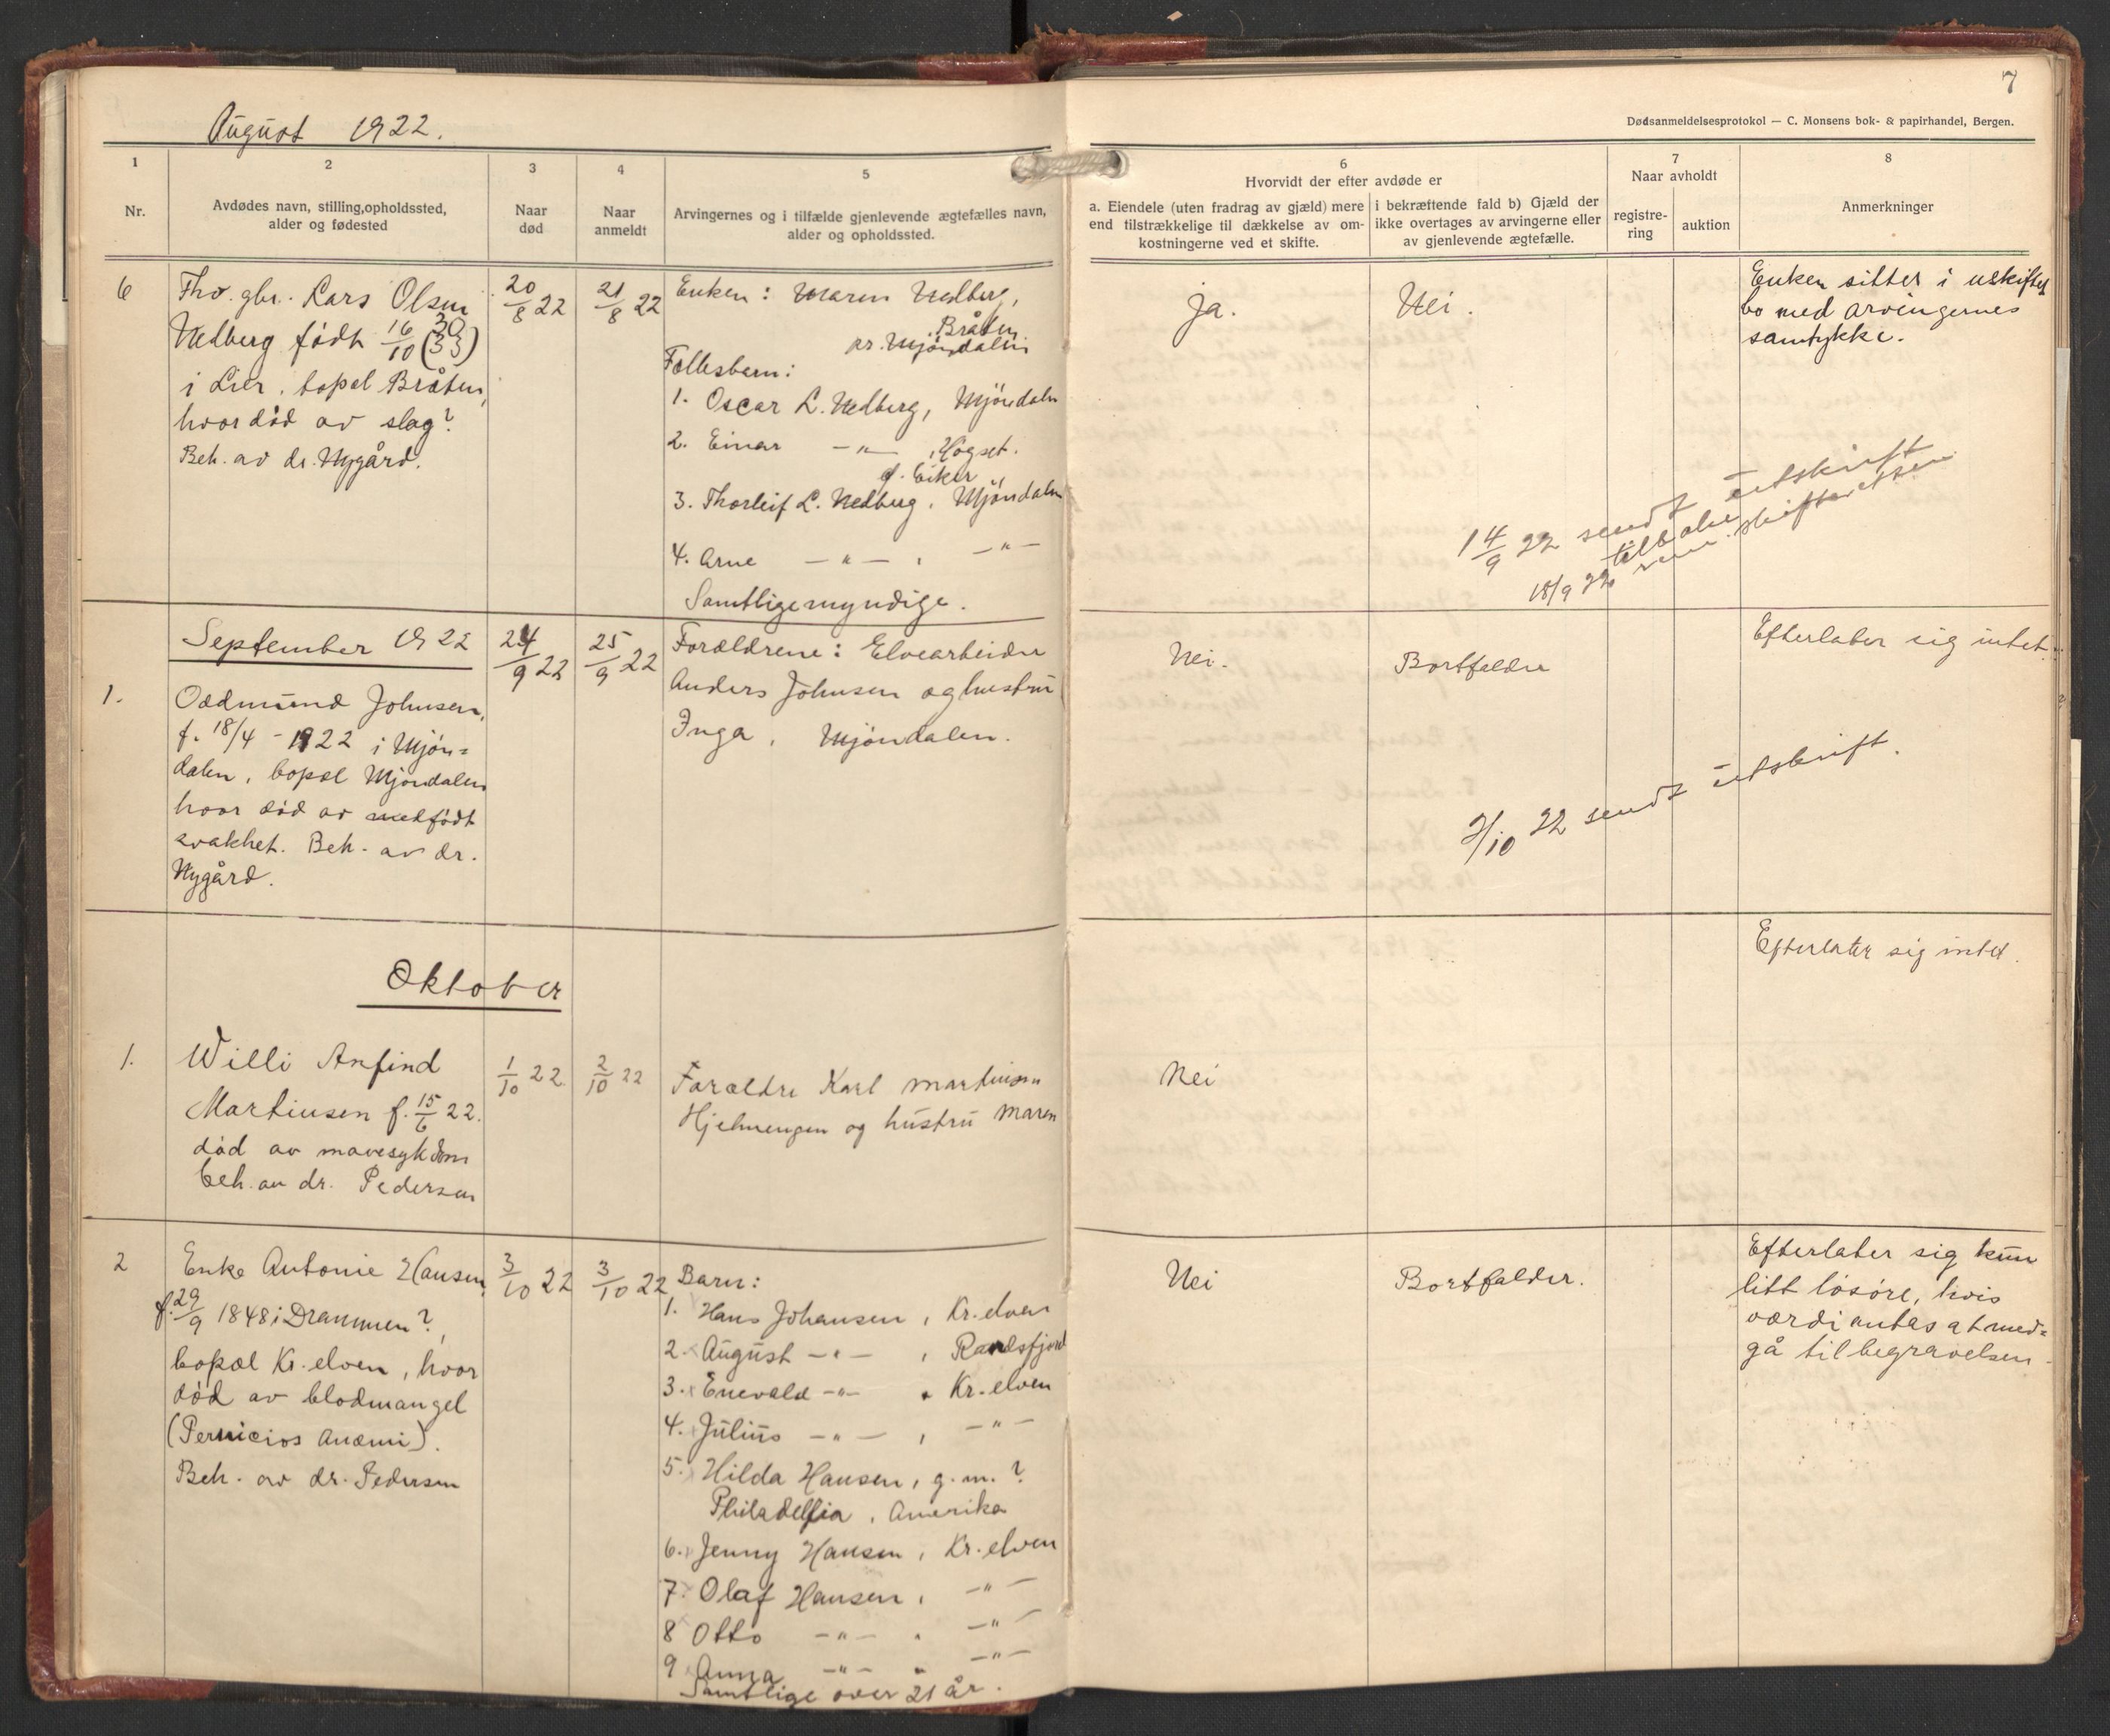 7
Dødsanmeldelsesprotokol — C. Monsens bok- & papirhandel, Bergen.
August 1922.
1
Nr.
2
Avdødes navn, stilling, opholdssted,
alder og fødested
3
Naar
død
4
Naar
anmeldt
5
Arvingernes og i tilfælde gjenlevende ægtefælles navn,
alder og opholdssted.
6
Hvorvidt der efter avdøde er
a. Eiendele (uten fradrag av gjæld) mere
end tilstrækkelige til dækkelse av om-
kostningerne ved et skifte.
i bekræftende fald b) Gjæld der
ikke overtages av arvingerne eller
av gjenlevende ægtefælle.
7
Naar avholdt
registre-
ring
auktion
8
Anmerkninger
6
Fhv. gbr. Lars Olsen
Nedberg født 16/10
i Lier, bopæl Bråten,
hvor død av slag?
Beh. av dr. Nygård.
20/8 22
21/8 22
Enken: Maren Nedberg,
Bråten
pr. Mjöndalen
Fællesbarn:
1. Oscar L. Nedberg, Mjöndalen
2. Einar —"— , Hogset.
ø. Eiker
3. Thorleif L. Nedberg, Mjöndalen
4. Arne —"— , —"—
Samtlige myndige.
Ja.
Nei.
Enken sitter i uskiftet
bo med arvingernes
samtykke.
14/9 22 sendt utskrift
til
18/9 22 skifteretten
September 1922
1.
Oddmund Johnsen,
f. 18/4 - 1922 i Mjön=
dalen, bopæl Mjöndalen
hvor død av medfödt
svakhet. Beh. av dr.
Nygård.
24/9 22
25/9 22
Forældrene: Elvearbeider
Anders Johnsen og hustru
Inga, Mjöndalen.
Nei.
Bortfalder
Efterlater sig intet.
2/10 22 sendt utskrift.
Oktober
1.
Willi Anfind
Martinsen f. 15/6 22.
död av mavesykdom
beh. av dr. Pedersen
1/10 22
2/10 22
Forældre Karl Martinsen
Hjelmengen og hustru Maren
Nei
Efterlater sig intet.
2
Enke Antonie Hansen,
f. 29/9 1848 i Drammen?,
bopæl Kr. elven, hvor
död av blodmangel
(Pernicios Anæmi).
Beh. av dr. Pedersen
3/10 22
3/10 22
Barn:
1. Hans Johansen, Kr. elven
2. August —"— , Randsfjord
3. Enevald —"— , Kr. elven
4. Julius —"— , —"—
5. Hilda Hansen, g. m. ?
Philadelfia, Amerika
6. Jenny Hansen, Kr. elven
7. Olaf Hansen, —"—
8 Otto —"— , —"—
9 Anna —"— , —"—
Samtlige over 21 år.
Nei
Bortfalder.
Efterlater sig kun
litt lösöre, hvis
værdi antas at med=
gå til begravelsen.